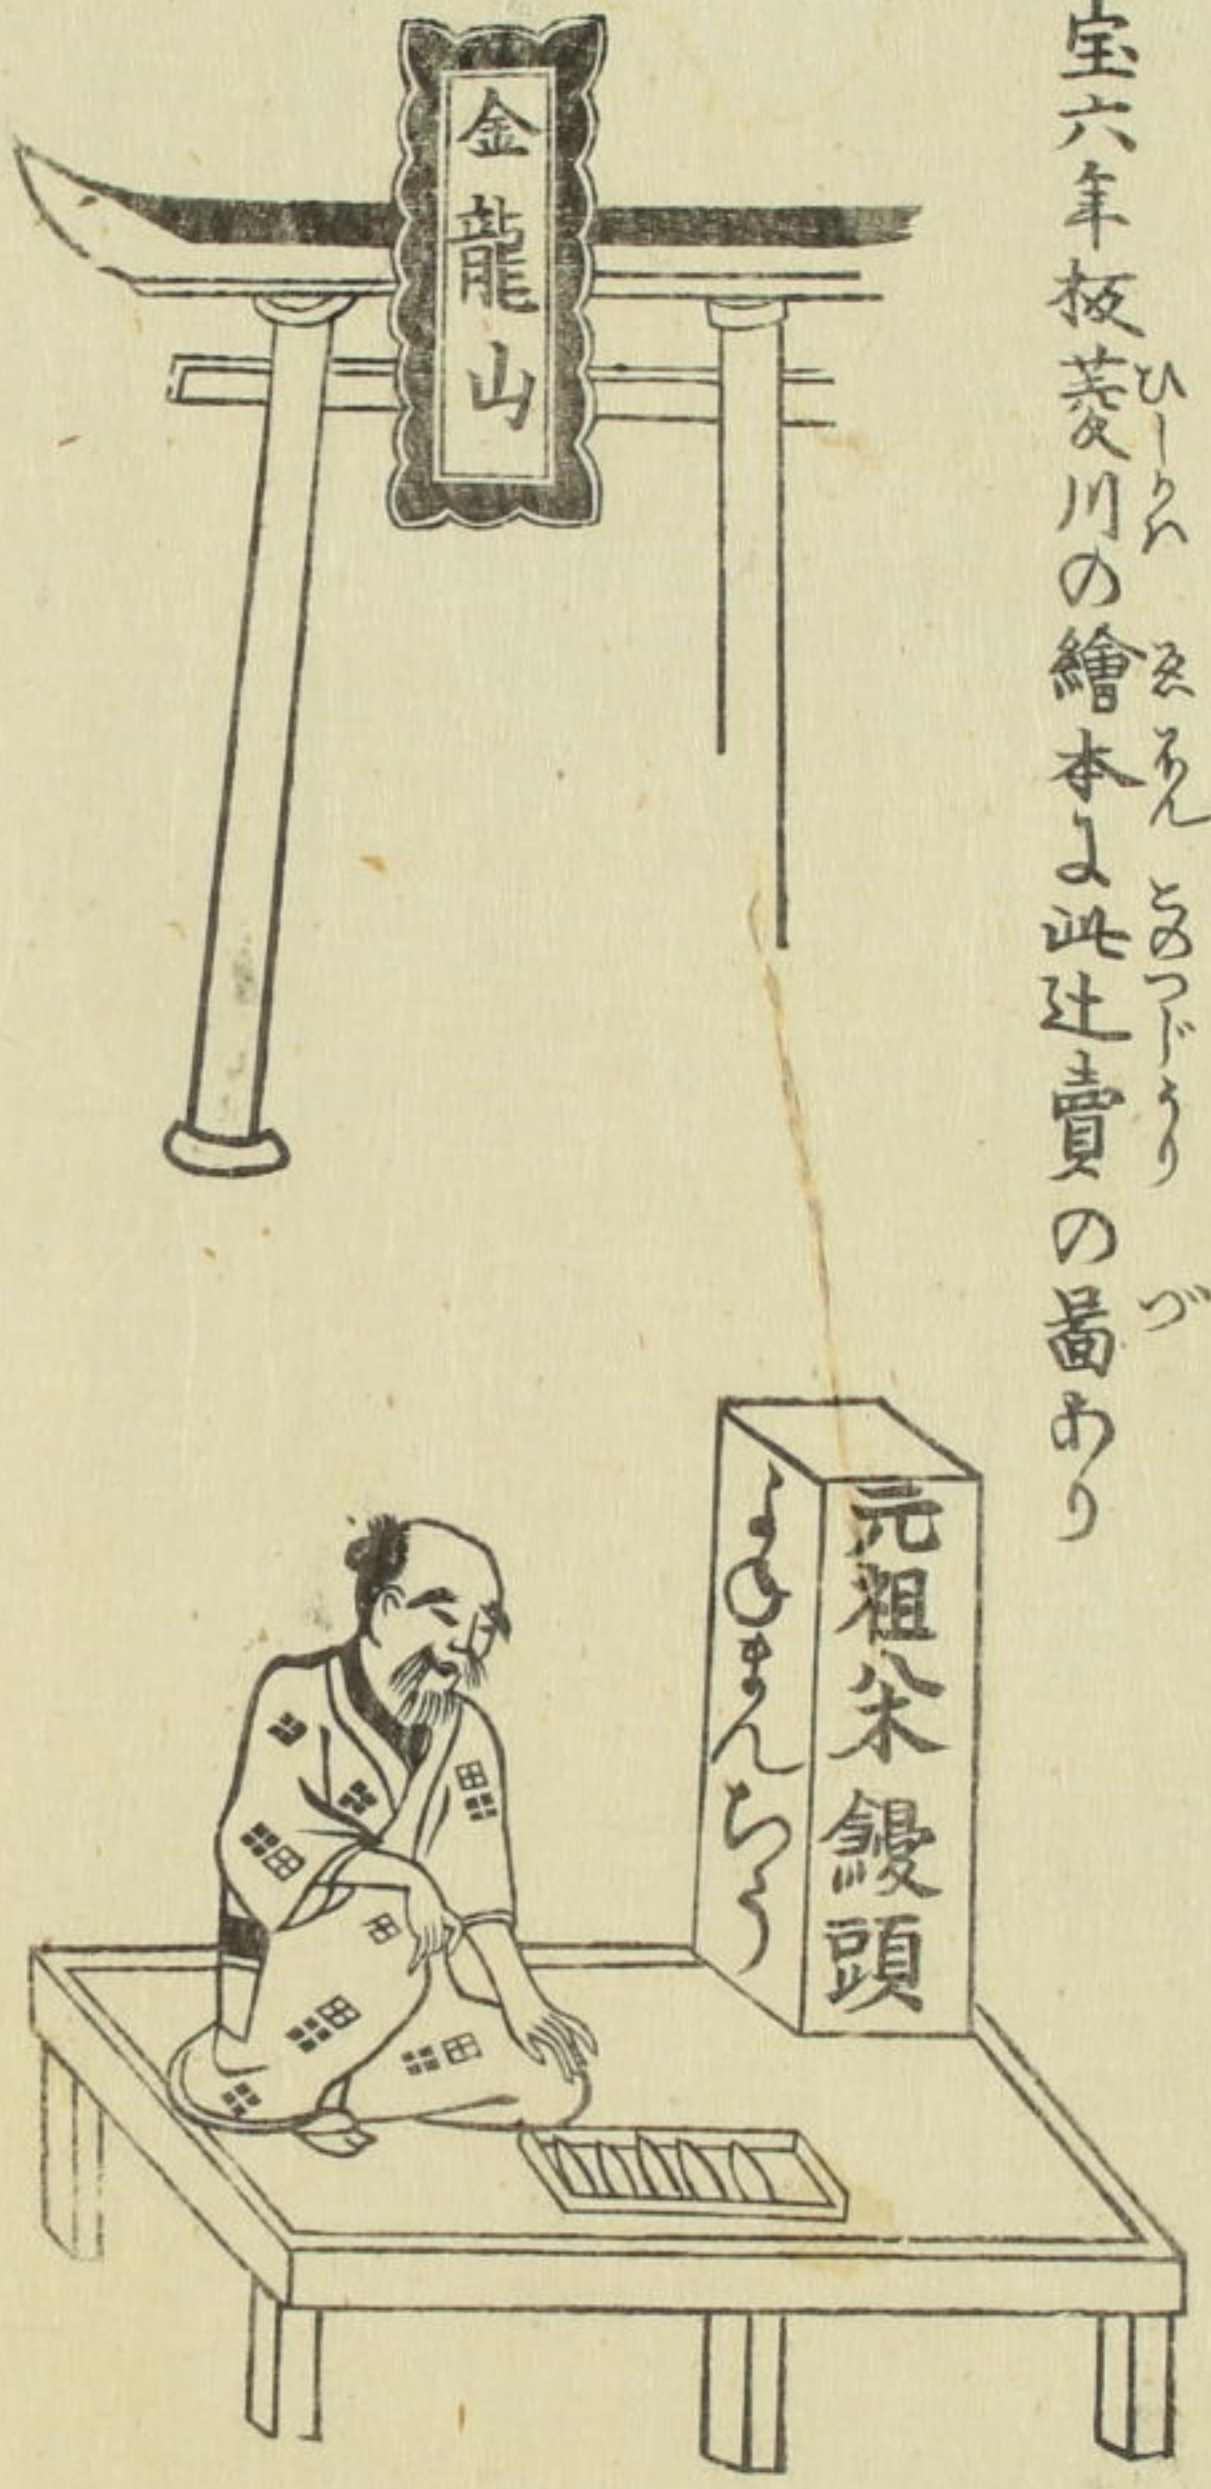 宝六年板菱川の繪本に此辻賣の啚あり
ひしかハ ゑほん このつじうり づ
金龍山
元祖米饅頭
よねまんちう